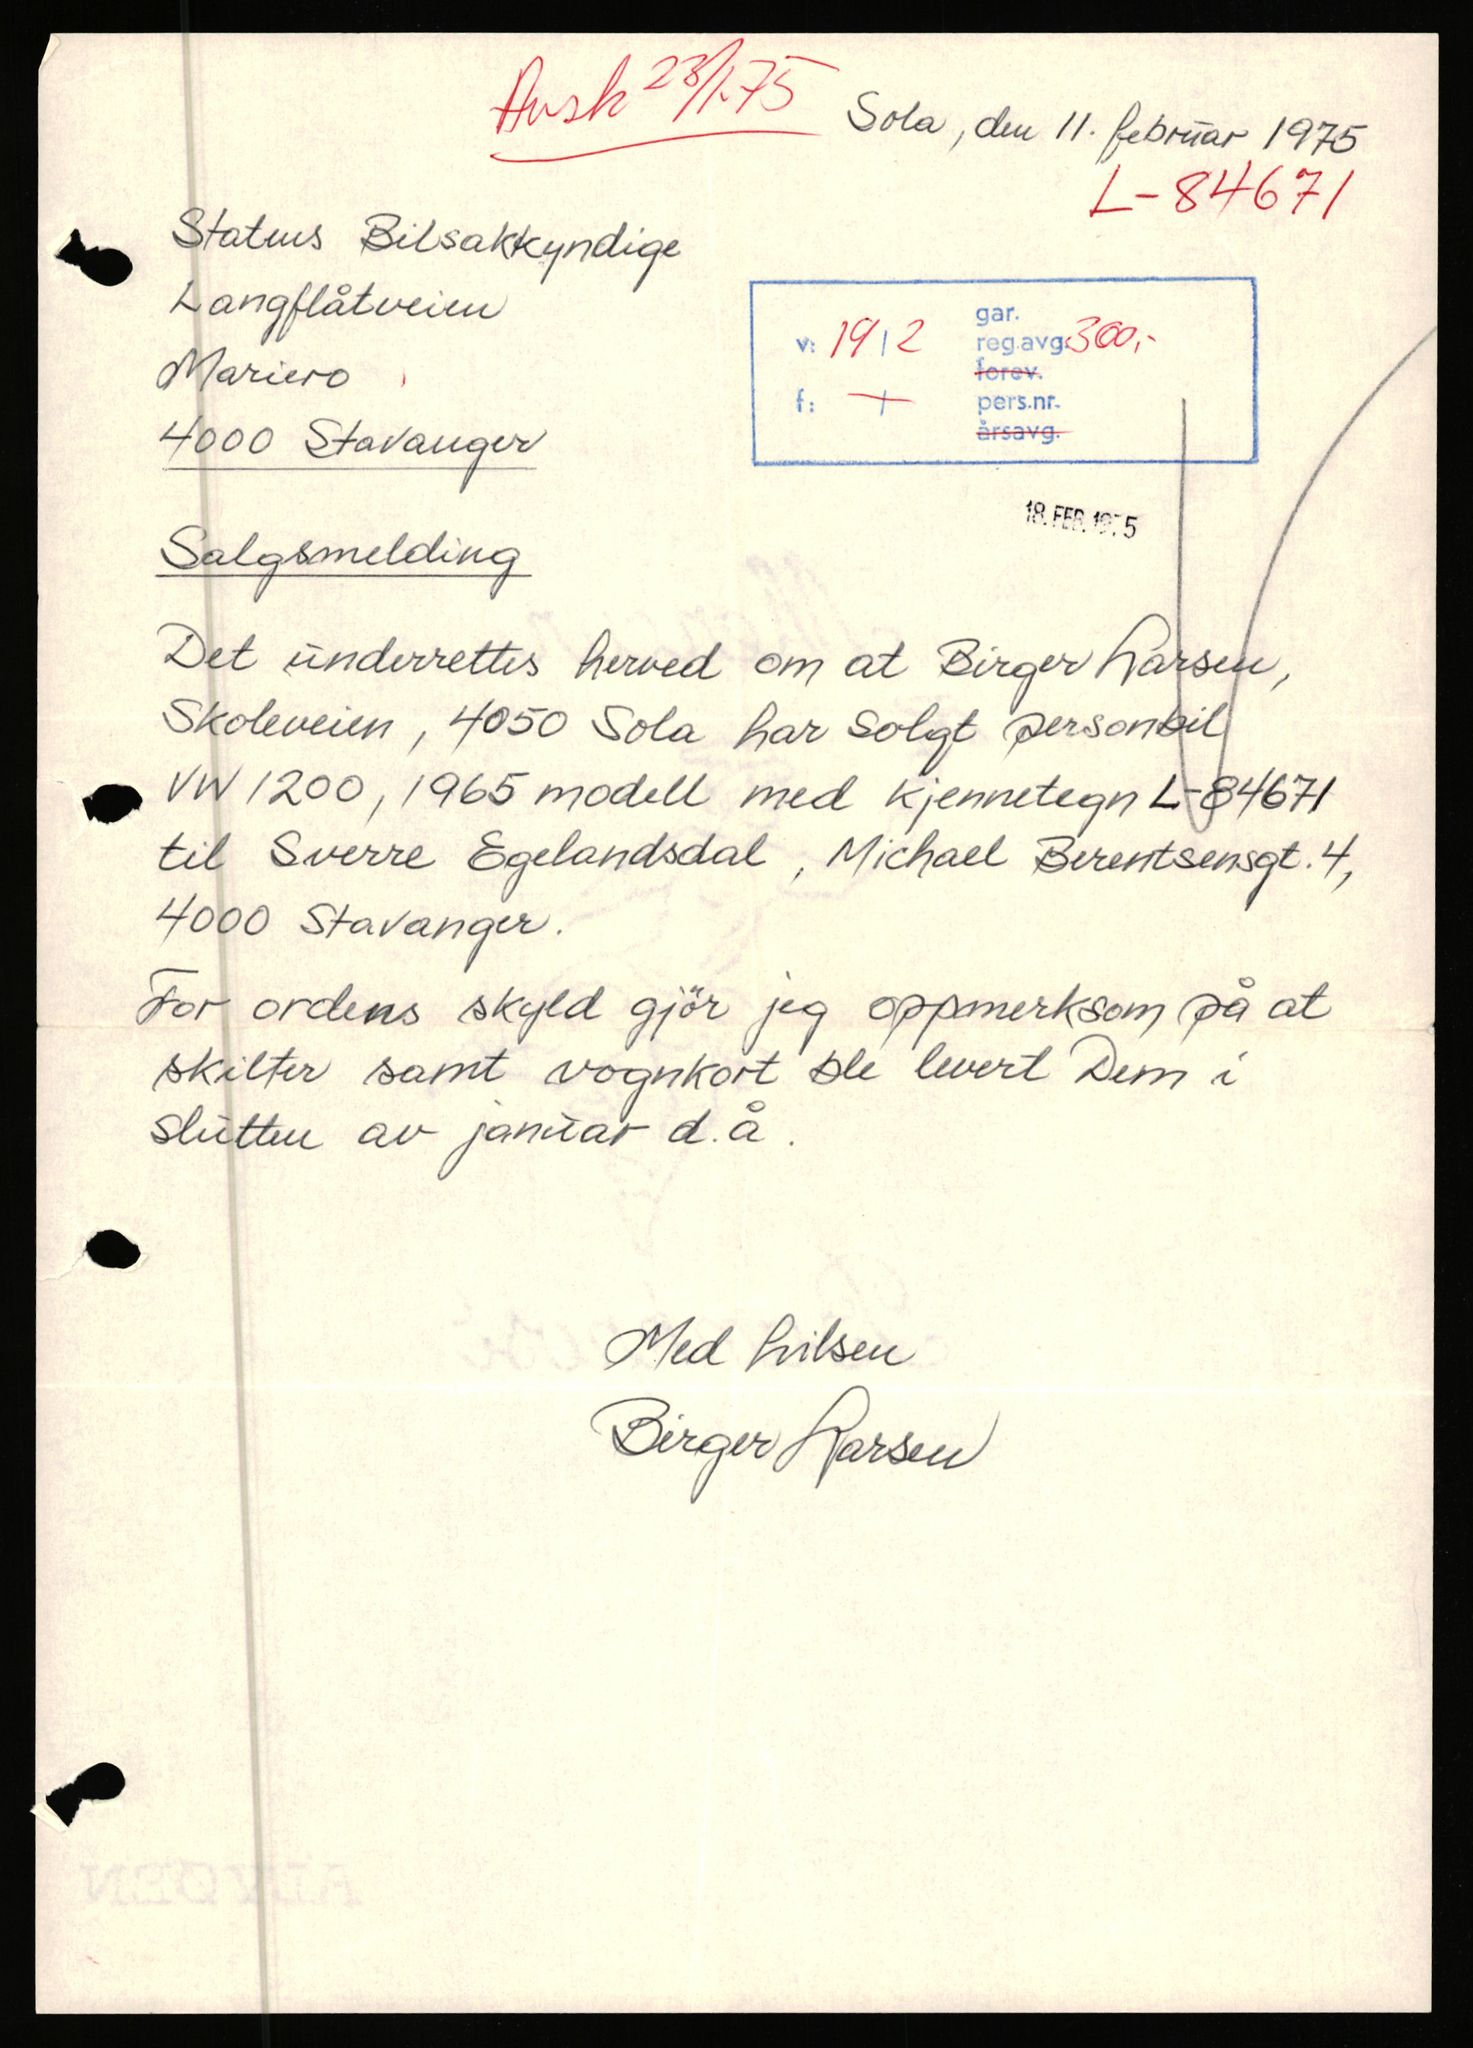 Avsk 23/1.75
Sola, den 11. februar 1975
L-84671
Statens Bilsakkyndige
Langflåtveien
Mariero
4000 Stavanger
gar.
v: 19/2 reg.avg. 300,-
forev.
f: pers.nr.
årsavg.
18. FEB. 1975
Salgsmelding
Det underrettes herved om at Birger Larsen,
Skoleveien, 4050 Sola har solgt personbil
VW 1200, 1965 modell med kjennetegn L-84671
til Sverre Egelandsdal, Michael Berentsensgt. 4,
4000 Stavanger.
For ordens skyld gjör jeg oppmerksom på at
skilter samt vognkort ble levert Dem i
slutten av januar d.å.
Med hilsen
Birger Larsen
ALVØEN